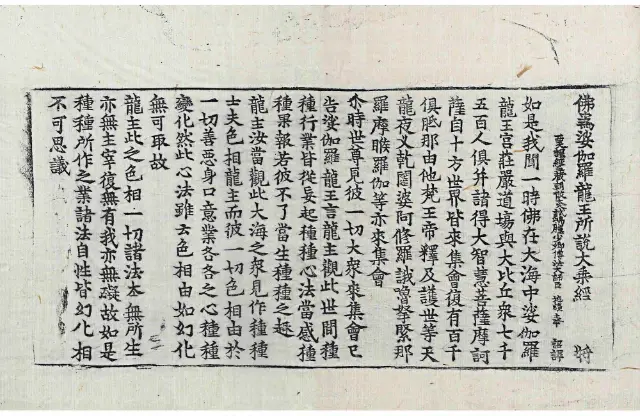 佛爲娑伽羅龍王所說大乘經
臣 施護奉 詔譯
如是我聞一時佛在大海中娑伽羅
龍王宮莊嚴道場與大比丘衆七千
五百人俱并諸得大智慧菩薩摩訶
薩自十方世界皆來集會復有百千
俱胝那由他梵王帝釋及護世等天
龍夜叉乹闥婆阿修羅誐嚕拏緊那
羅摩睺羅伽等亦來集會
尒時世尊見彼一切大衆來集會已
告娑伽羅龍王言龍主觀此世間種
種行業皆從妄起種種心法當感種
種果報若彼不了當生種種之趣
龍主汝當觀此大海之衆見作種種
士夫色相龍主而彼一切色相由於
一切善惡身口意業各各之心種種
變化然此心法雖云色相由如幻化
無可取故
龍主此之色相一切諸法本無所生
亦無主宰復無有我亦無礙故如是
種種所作之業諸法自性皆幻化相
不可思議